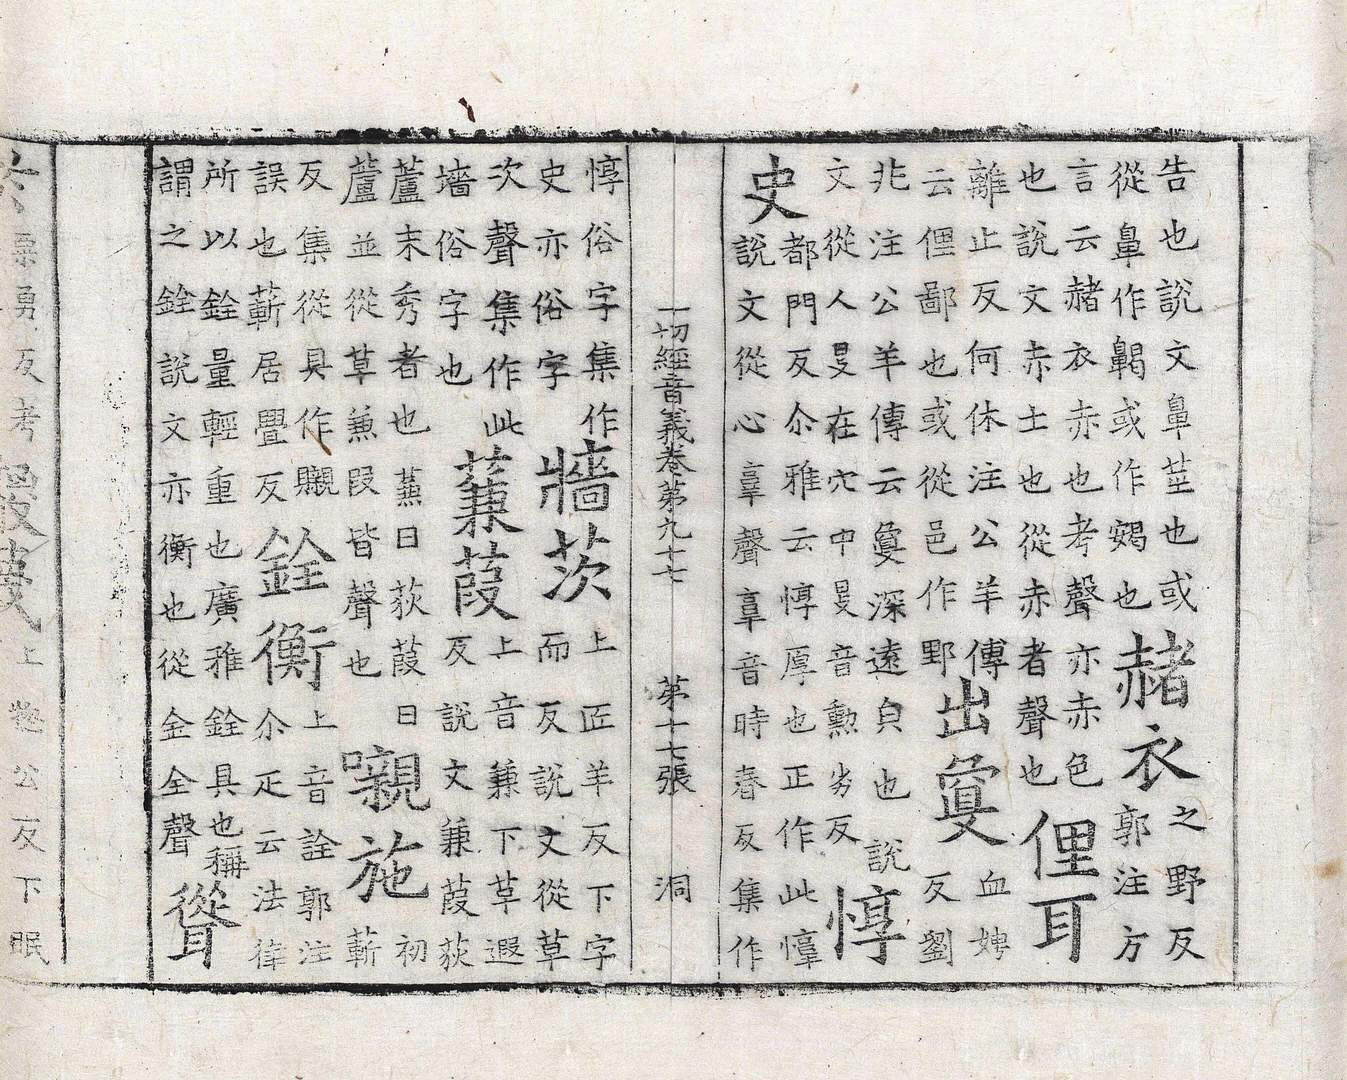 告也說文鼻莖也或
從鼻作齃或作也
赭衣
之野反
郭注方
言云赭衣赤也考聲亦赤色
也說文赤土也從赤者聲也
俚耳
離止反何休注公羊傳
云俚鄙也或從邑作野
出敻
血娉
反劉
兆注公羊傳云敻深遠皃也說
文從人𥄎在穴中𥄎音勳劣反
惇
史
都門反尒雅云惇厚也正作此
說文從心𦎫聲𦎫音時春反集作
一切經音義卷第九十七 第十七張 洞
惇俗字集作
史亦俗字
牆茨
上匠羊反下字
而反說文從草
次聲集作此
墻俗字也
蒹葭
上音兼下草遐
反說文蒹葭荻
蘆末秀者也蕪曰荻葭曰
蘆並從草兼叚皆聲也
嚫施
初
靳
反集從具作䞋
誤也靳居舋反
銓衡
上音詮郭注
尒疋云法律
所以銓量輕重也廣雅銓具也稱
謂之銓說文亦衡也從金全聲
聳
勇反考
上公反下眠